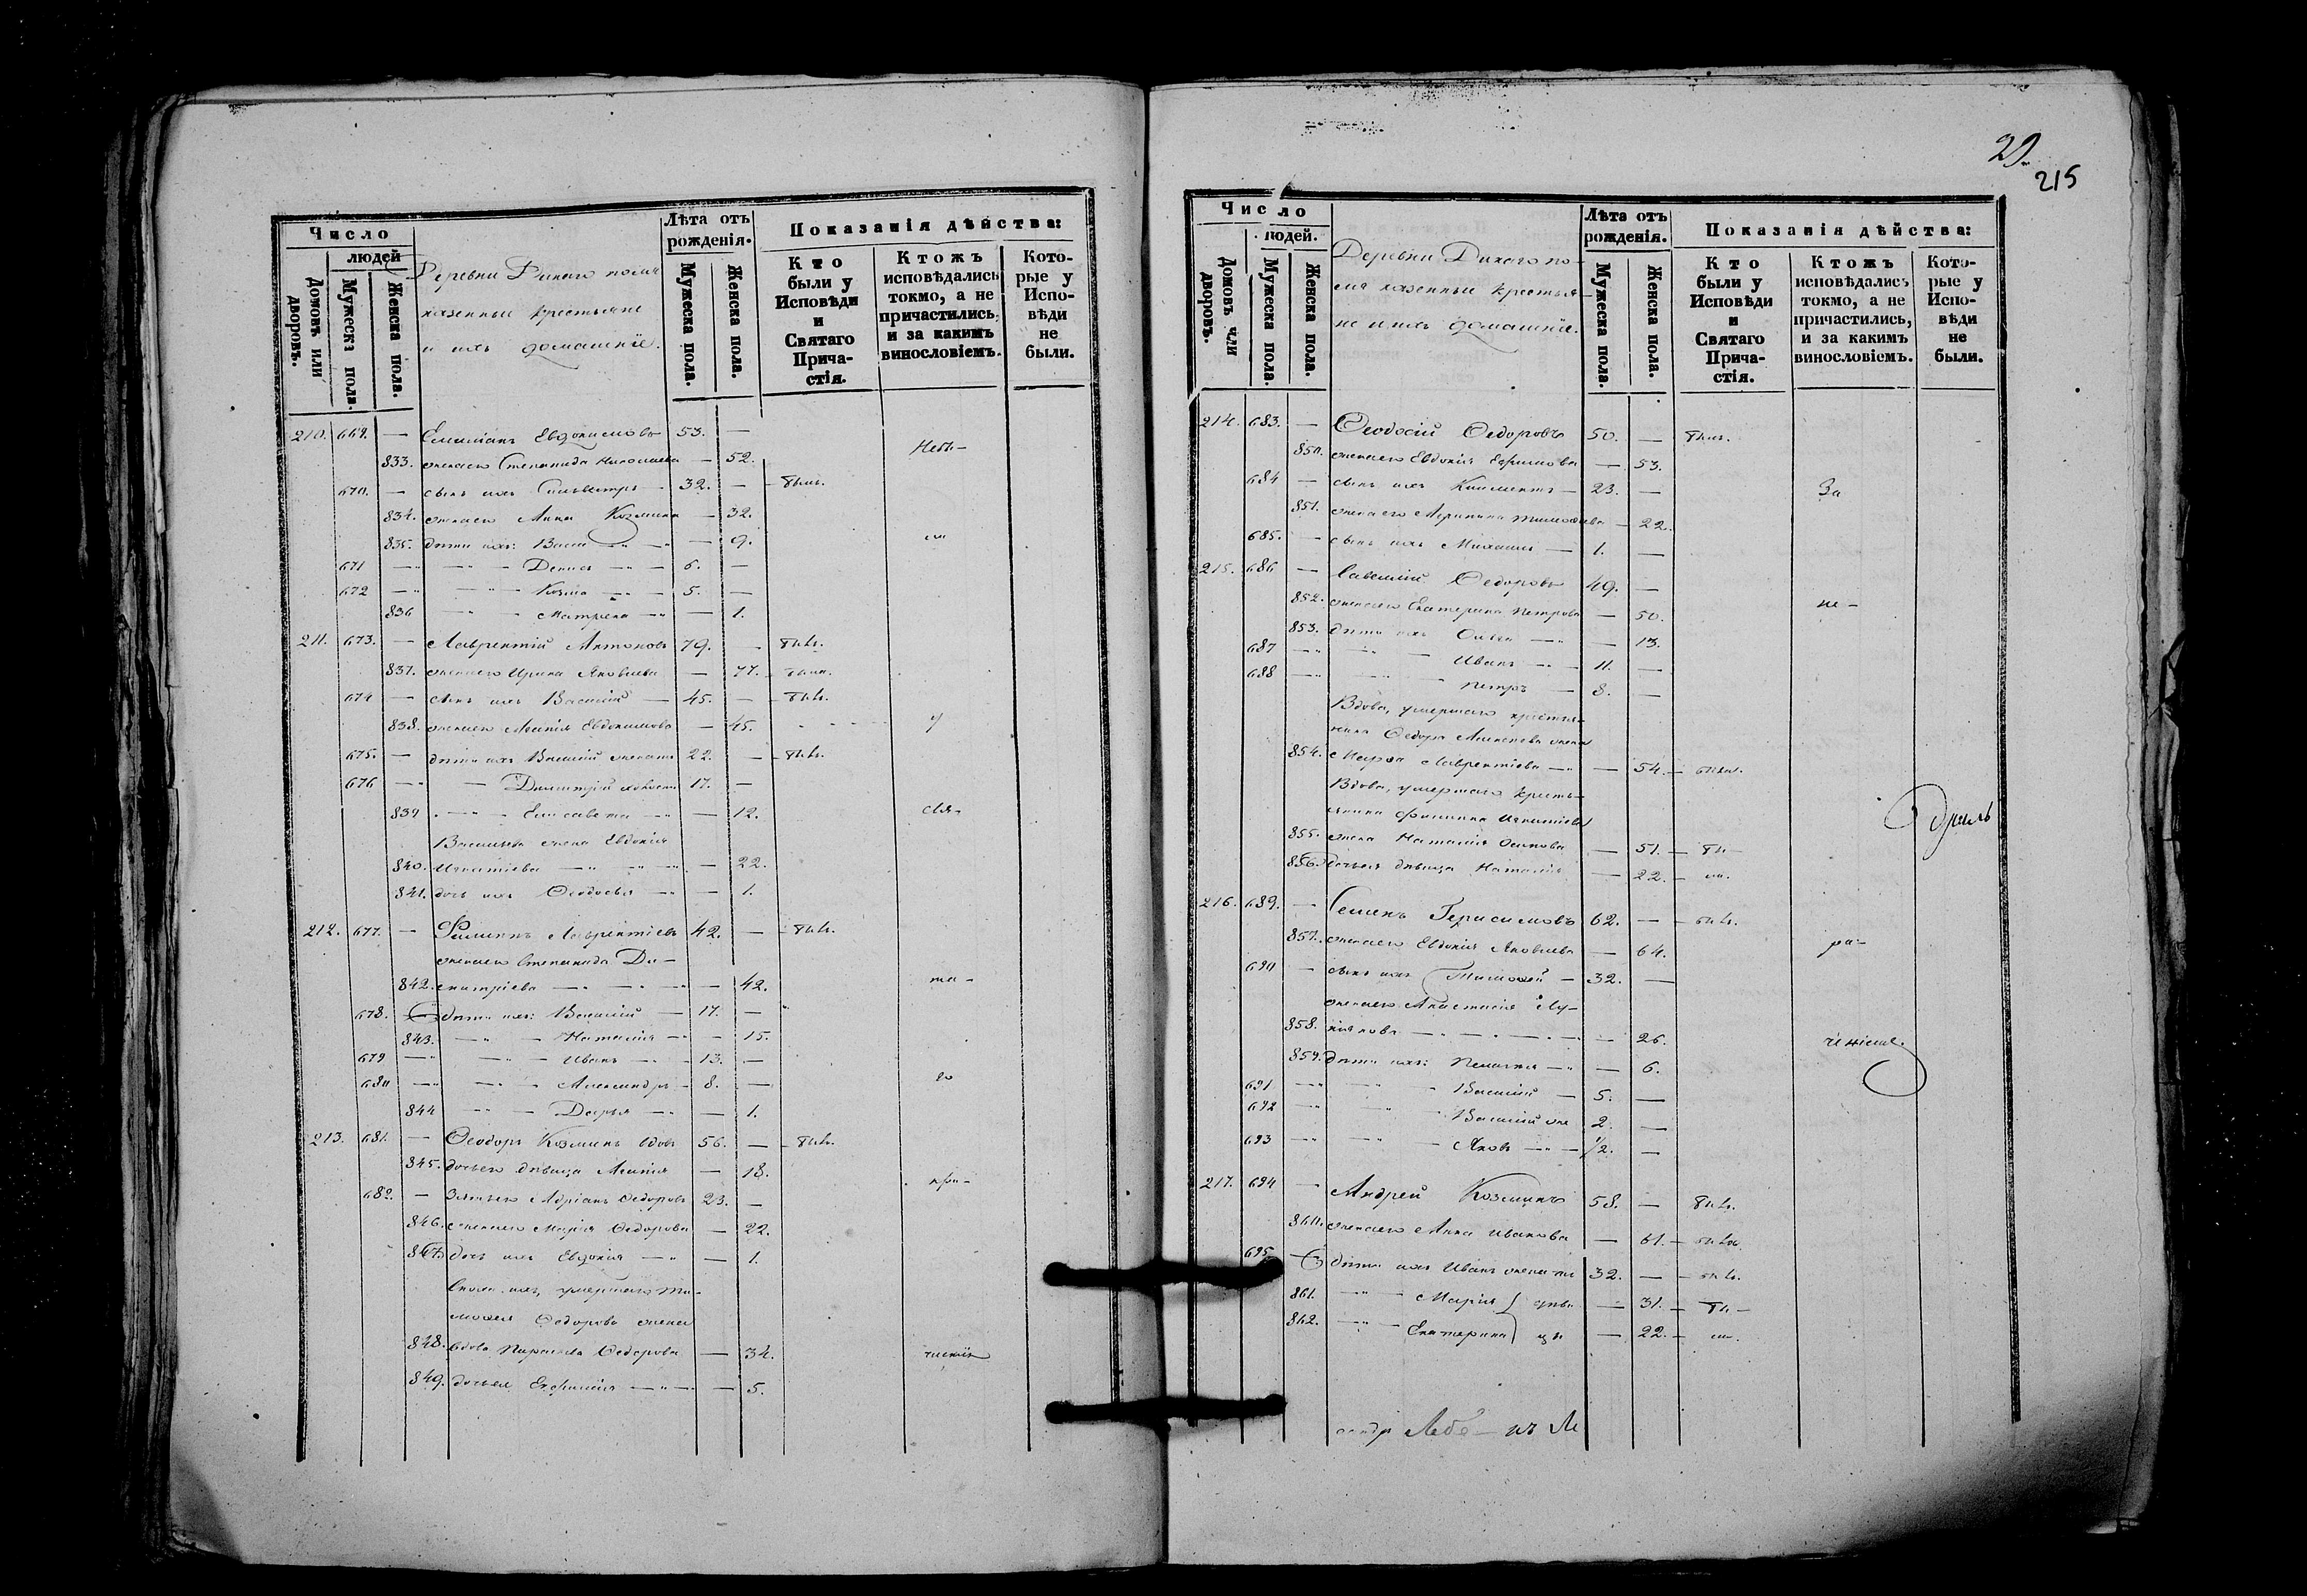 29.
215
Число
людей
Домовъ или дворовъ.
Мужеска пола.
Женска пола.
Деревни Дикаго поля
казенные крестьяне
и ихъ домашніе.
Лѣта отъ рожденія.
Мужеска пола.
Женска пола.
Показанія дѣйства:
Кто были у Исповѣди и Святаго Причастія.
Ктожъ исповѣдались токмо, а не причастились, и за какимъ винословіемъ.
Которые у Исповѣди не были.
210. 669. — Емиліанъ Евдокимовъ 53. —
Небы-
833. жена его Степанида Николаева — 52.
670. — сынъ ихъ Сильвестръ 32. — былъ.
834. жена его Анна Козмина — 32.
835. дѣти ихъ: Васса — 9.
ли
671 — Денисъ 6. —
672 — Козма 5. —
836 — Матрена — 1.
211. 673. — Лаврентій Антоновъ 79. — былъ.
837. жена его Ирина Яковлева — 77. была.
674 — сынъ ихъ Василій 45. — былъ.
838. жена его Евдокимова — 45.
у
675. — дѣти ихъ Василій женатъ 22. — былъ.
676 — Димитрій холостъ 17. —
839 — Елисавета — 12.
Свя-
Васильева жена Евдокія
840. Игнатіева — 22.
841. дочь ихъ Феодосья — 1.
212. 677. — Филиппъ Лаврентіевъ 42. — былъ.
жена его Степанида Ди-
842. митріева — 42.
та-
678. дѣти ихъ: Василій 17. —
843. — Наталія — 15.
679 — Иванъ 13. —
680 — Александръ 8. —
го
844 — Дарья — 1.
213. 681. — Феодоръ Козминъ вдовъ 56. — былъ.
845. дочь его дѣвица — 18.
при-
682. — Зять его Адріанъ Федоровъ 23. —
846. жена его Марія Федорова — 22.
847. дочь ихъ Евдокія — 1.
ихъ, умершаго Ти-
мофея Федорова жена
848. вдова Параскева Федорова — 34.
частія
849. дочь ея Евфимія — 5.
Число
людей.
Домовъ или дворовъ.
Мужеска пола.
Женска пола.
Деревни Дикаго по-
ля казенные крестья-
не и ихъ домашніе.
Лѣта отъ рожденія.
Мужеска пола.
Женска пола.
Показанія дѣйства:
Кто были у Исповѣди и Святаго Причастія.
Ктожъ исповѣдались токмо, а не причастились, и за какимъ винословіемъ.
Которые у Исповѣди не были.
214. 683. — Феодосій Федоровъ 50. — былъ.
850. жена его Евдокія Ефимова — 53.
684 — сынъ ихъ Климентъ 23. —
За
851. жена его Тимофеева — 22.
685. — сынъ ихъ Михаилъ 1. —
215. 686 — Савелій Федоровъ 49. —
852. жена его Екатерина Петрова — 50.
не-
853. дѣти ихъ Ольга — 13.
687 — Иванъ 11. —
688 — Петръ 8. —
Вдова, умершаго крестья-
нина Федора жена
854. Марфа Лаврентіева — 54. — была.
Вдова, умершаго кресть-
янина Филиппа Игнатіева
855. жена Наталія Осипова — 51. — бы-
856. дочь ея дѣвица Наталія — 22. — ли.
216. 689. — Семенъ Герасимовъ 62. — былъ.
857. жена его Евдокія Яковлева — 64.
ра-
690 — сынъ ихъ Тимофей 32. —
жена его Анастасія Лу-
858. кіянова — 26.
859. дѣти ихъ: Пелагія — 6.
691 — Василій 5. —
692 — Василій же 2. —
693 — Яковъ 1/2. —
217. 694 — Андрей Козминъ 58. — былъ.
860. жена его Анна Иванова — 61. — была.
695 дѣти ихъ Иванъ женатъ 32. — былъ.
861. — Марія дѣви- — 31. — бы-
862. — Екатерина цы — 22. — ли.